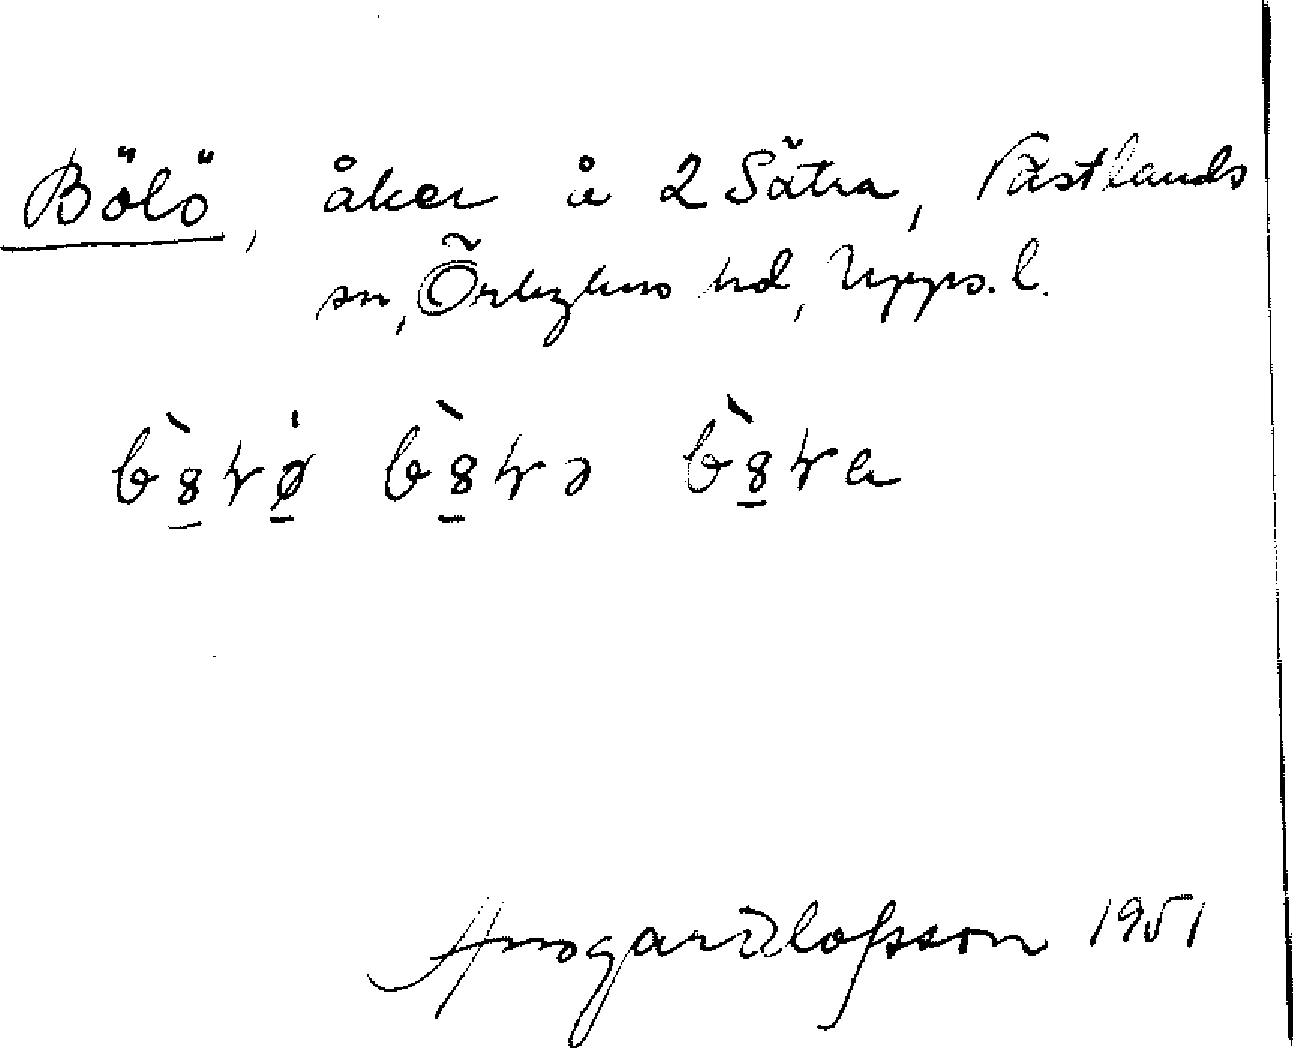 Bölö, åker å 2 Sätra, Västlands
sn, Örbyhus hd, Upps. l.
Ansgar Olofsson 1951